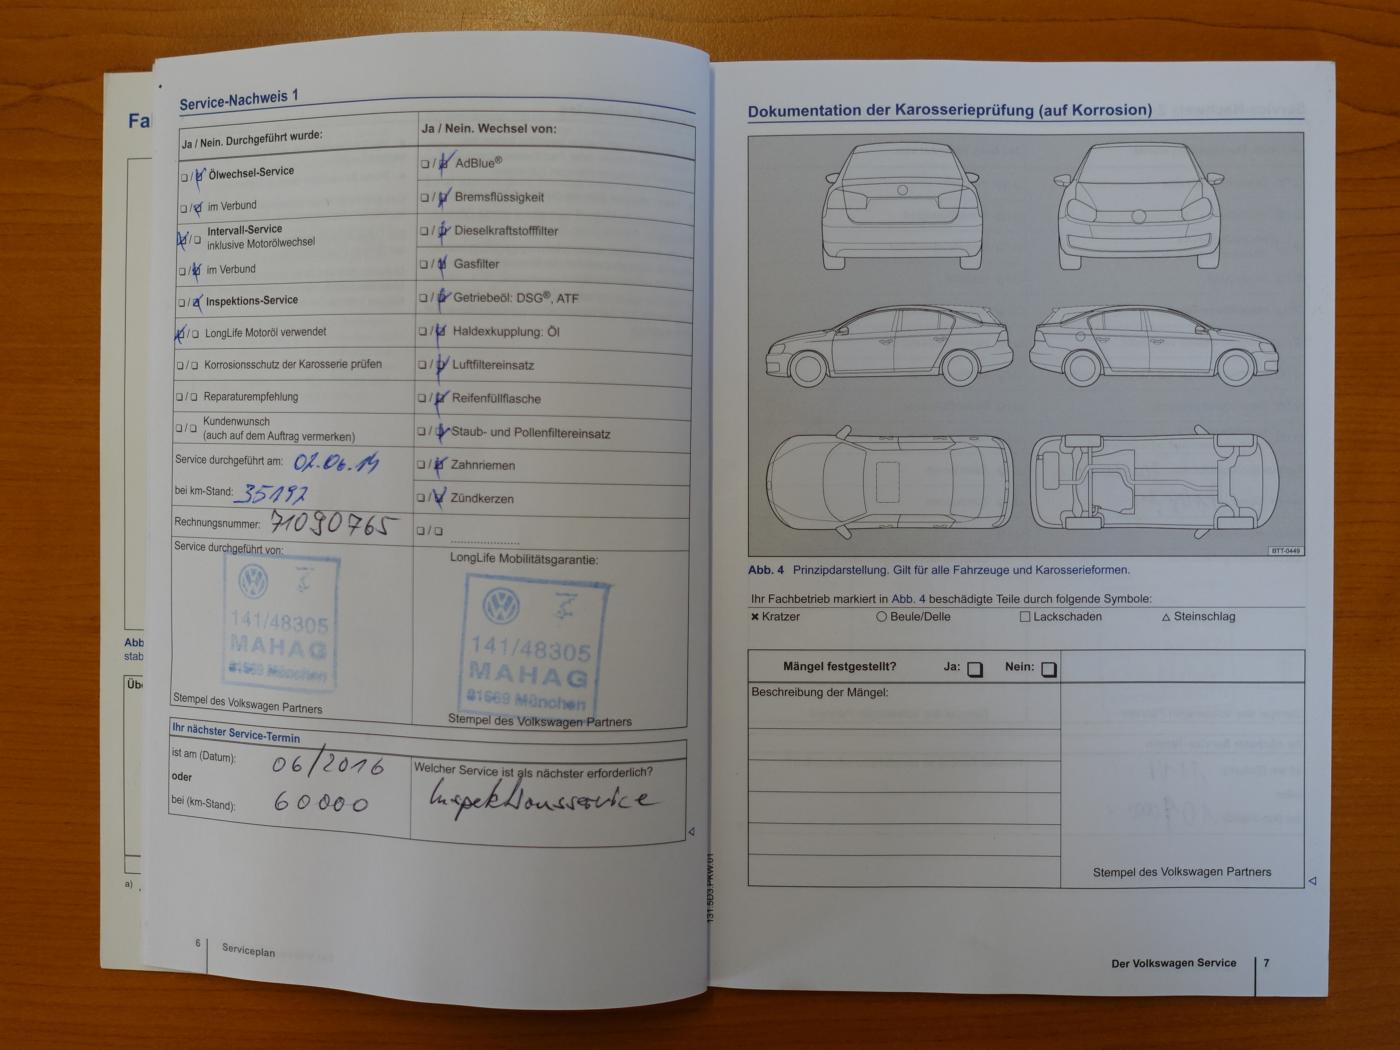 Fa
Abb
stab
Üb
a)
Service-Nachweis 1
Ja / Nein. Durchgeführt wurde:
Ölwechsel-Service
im Verbund
Intervall-Service
inklusive Motorölwechsel
im Verbund
Inspektions-Service
LongLife Motoröl verwendet
Korrosionsschutz der Karosserie prüfen
Reparaturempfehlung
Kundenwunsch
(auch auf dem Auftrag vermerken)
Service durchgeführt am: 02.06.14
bei km-Stand: 35192
Rechnungsnummer: 71090765
Service durchgeführt von:
141/48305
MAHAG
81669 München
Stempel des Volkswagen Partners
Ja / Nein. Wechsel von:
AdBlue®
Bremsflüssigkeit
Dieselkraftstofffilter
Gasfilter
Getriebeöl: DSG®, ATF
Haldexkupplung: Öl
Luftfiltereinsatz
Reifenfüllflasche
Staub- und Pollenfiltereinsatz
Zahnriemen
Zündkerzen
LongLife Mobilitätsgarantie:
141/48305
MAHAG
81669 München
Stempel des Volkswagen Partners
Ihr nächster Service-Termin
ist am (Datum): 06/2016
oder
bei (km-Stand): 60000
Welcher Service ist als nächster erforderlich?
Inspektionsservice
6 Serviceplan
131.5D3.PKW.01
Dokumentation der Karosserieprüfung (auf Korrosion)
BTT-0449
Abb. 4 Prinzipdarstellung. Gilt für alle Fahrzeuge und Karosserieformen.
Ihr Fachbetrieb markiert in Abb. 4 beschädigte Teile durch folgende Symbole:
Kratzer Beule/Delle Lackschaden Steinschlag
Mängel festgestellt? Ja: Nein:
Beschreibung der Mängel:
Stempel des Volkswagen Partners
Der Volkswagen Service 7